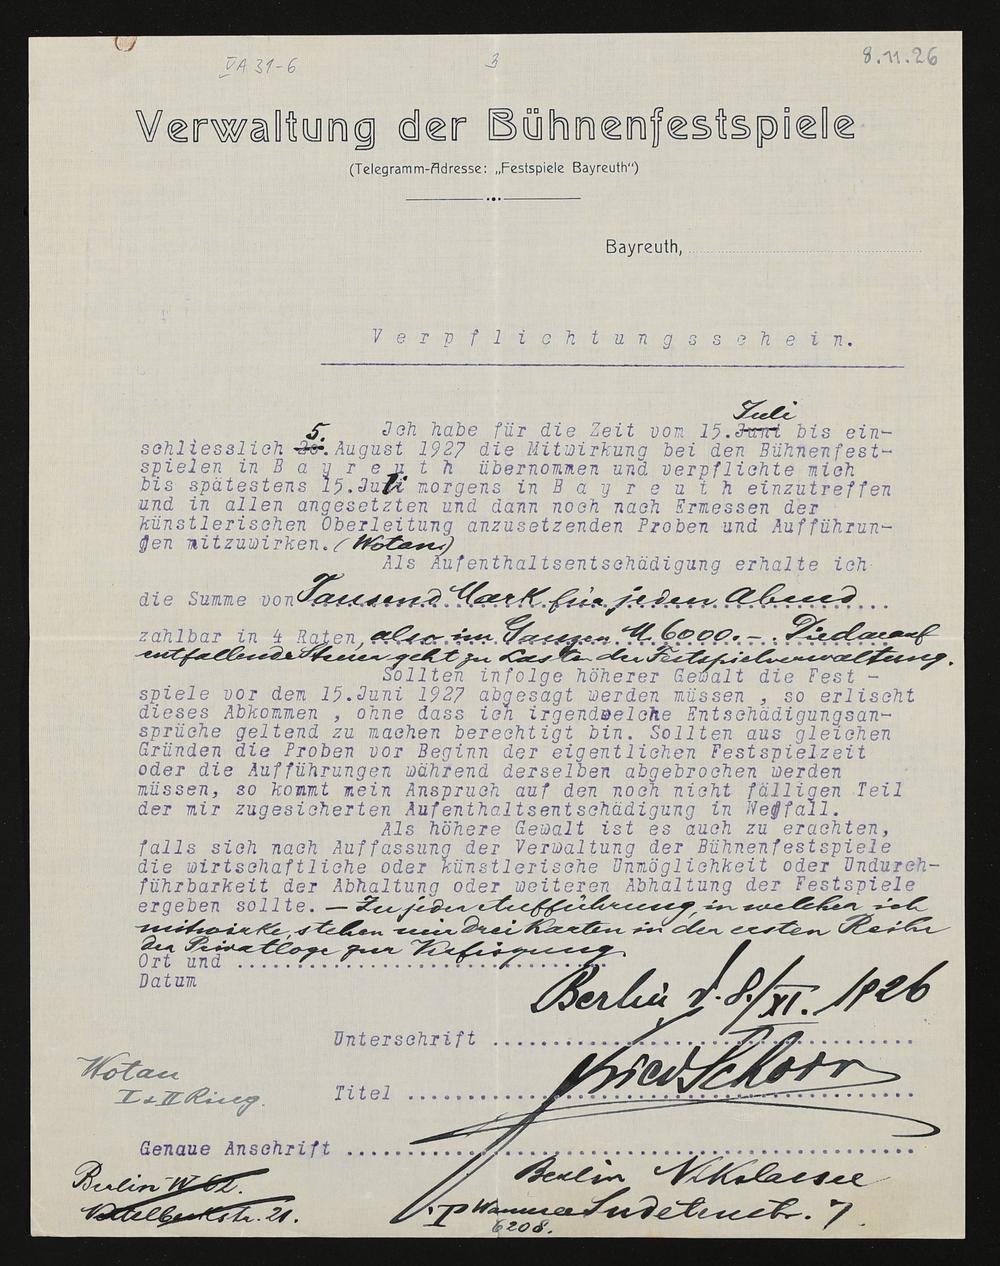 VA 31-6
3
8.11.26
Verwaltung der Bühnenfestspiele
(Telegramm-Adresse: „Festspiele Bayreuth")
Bayreuth,
Verpflichtungsschein.
Juli
Ich habe für die Zeit vom 15. Juni bis ein-
5.
schliesslich 20. August 1927 die Mitwirkung bei den Bühnenfest-
spielen in Bayreuth übernommen und verpflichte mich
bis spätestens 15. Juli morgens in Bayreuth einzutreffen
und in allen angesetzten und dann noch nach Ermessen der
künstlerischen Oberleitung anzusetzenden Proben und Aufführun-
gen mitzuwirken. (Wotan)
Als Aufenthaltsentschädigung erhalte ich
die Summe von Tausend Mark für jeden Abend
zahlbar in 4 Raten, also im Ganzen M 6000.-. Die darauf
entfallende Steuer geht zu Lasten der Festspielverwaltung.
Sollten infolge höherer Gewalt die Fest-
spiele vor dem 15. Juni 1927 abgesagt werden müssen , so erlischt
dieses Abkommen , ohne dass ich irgendwelche Entschädigungsan-
sprüche geltend zu machen berechtigt bin. Sollten aus gleichen
Gründen die Proben vor Beginn der eigentlichen Festspielzeit
oder die Aufführungen während derselben abgebrochen werden
müssen, so kommt mein Anspruch auf den noch nicht fälligen Teil
der mir zugesicherten Aufenthaltsentschädigung in Wegfall.
Als höhere Gewalt ist es auch zu erachten,
falls sich nach Auffassung der Verwaltung der Bühnenfestspiele
die wirtschaftliche oder künstlerische Unmöglichkeit oder Undurch-
führbarkeit der Abhaltung oder weiteren Abhaltung der Festspiele
ergeben sollte. — Zu jeder Aufführung, in welcher ich
mitwirke, stehen mir drei Karten in der ersten Reihe
der Privatloge zur Verfügung
Ort und
Datum
Berlin d. 8./XI. 1926
Unterschrift
Fried Schorr
Wotan
I & II Ring.
Titel
Genaue Anschrift
Berlin W 62.
Berlin Nikolassee
Sudetenstr. 7
Wannsee
6208.